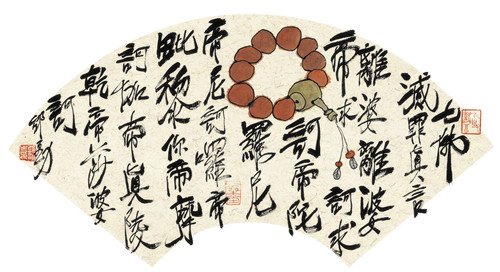 七佛
滅罪真言
離婆離婆
帝求訶求
訶帝陀
羅尼
帝尼訶囉帝
毗黎你帝摩
訶伽帝真陵
乾帝莎婆
訶